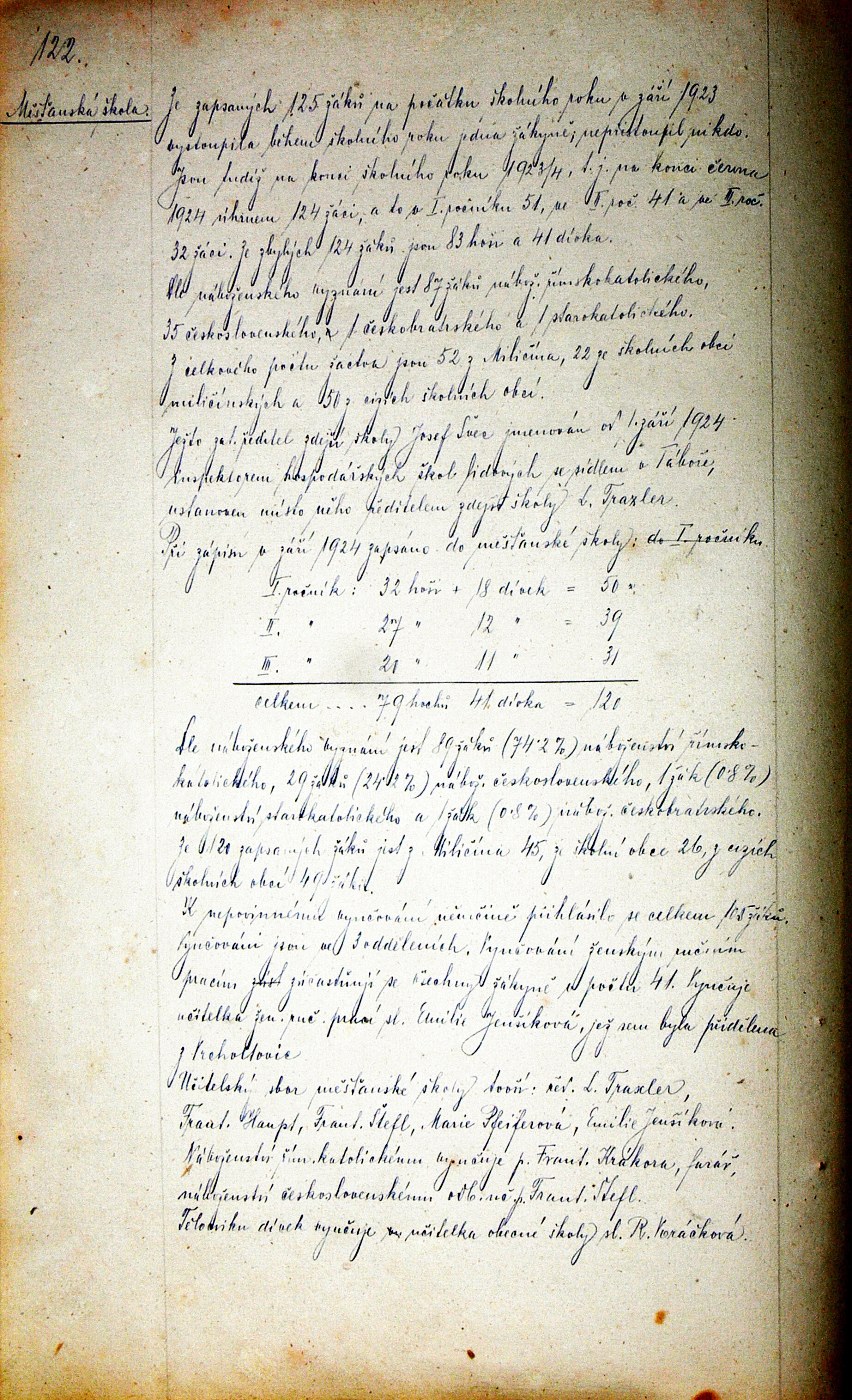 122.
Měšťanská škola.
Ze zapsaných 125 žáků na počátku školního roku v září 1923
vystoupila během školního roku jedna žákyně, nepřistoupil nikdo.
Jsou tudíž na konci školního roku 1923/4, t. j. na konci června
1924 úhrnem 124 žáci, a to v I. ročníku 51, ve II. roč. 41 a ve III. roč.
32 žáci. Ze zbylých 124 žáků jsou 83 hoši a 41 dívka.
Dle náboženského vyznání jest 87 žáků nábož. římskokatolického,
35 československého, 1 českobratrského a 1 starokatolického.
Z celkového počtu žactva jsou 52 z Miličína, 22 ze školních obcí
miličínských a 50 z cizích školních obcí.
Ježto zat. ředitel zdejší školy Josef Švec jmenován od 1. září 1924
inspektorem hospodářských škol lidových se sídlem v Táboře,
ustanoven místo něho ředitelem zdejší školy L. Traxler.
Při zápisu v září 1924 zapsáno do měšťanské školy: do I. ročníku
I. ročník : 32 hoši + 18 dívek = 50 ž.
II. " 27 " 12 " = 39
III. " 20 " 11 " 31
celkem .... 79 hochů 41 dívka = 120
Dle náboženského vyznání jest 89 žáků (74·2 %) náboženství římsko-
katolického, 29 žáků (24·2 %) nábož. československého, 1 žák (0·8 %)
náboženství starokatolického a 1 žák (0·8 %) nábož. českobratrského.
Ze 120 zapsaných žáků jest z Miličína 45, ze školní obce 26, z cizích
školních obcí 49 žáků.
K nepovinnému vyučování němčině přihlásilo se celkem 105 žáků.
Vyučováni jsou ve 3 odděleních. Vyučování ženským ručním
pracím zúčastňují se všechny žákyně v počtu 41. Vyučuje
učitelka žen. ruč. prací sl. Emilie Jenšíková, jež sem byla přidělena
z Vrchotovic
Učitelský sbor měšťanské školy tvoří: řed. L. Traxler,
Frant. Haupt, Frant. Štefl, Marie Pfeiferová, Emilie Jenšíková.
Náboženství řím. katolickému vyučuje p. Frant. Krákora, farář,
náboženství československému odb. uč. p. Frant. Štefl.
Tělocviku dívek vyučuje učitelka obecné školy sl. R. Koračková.